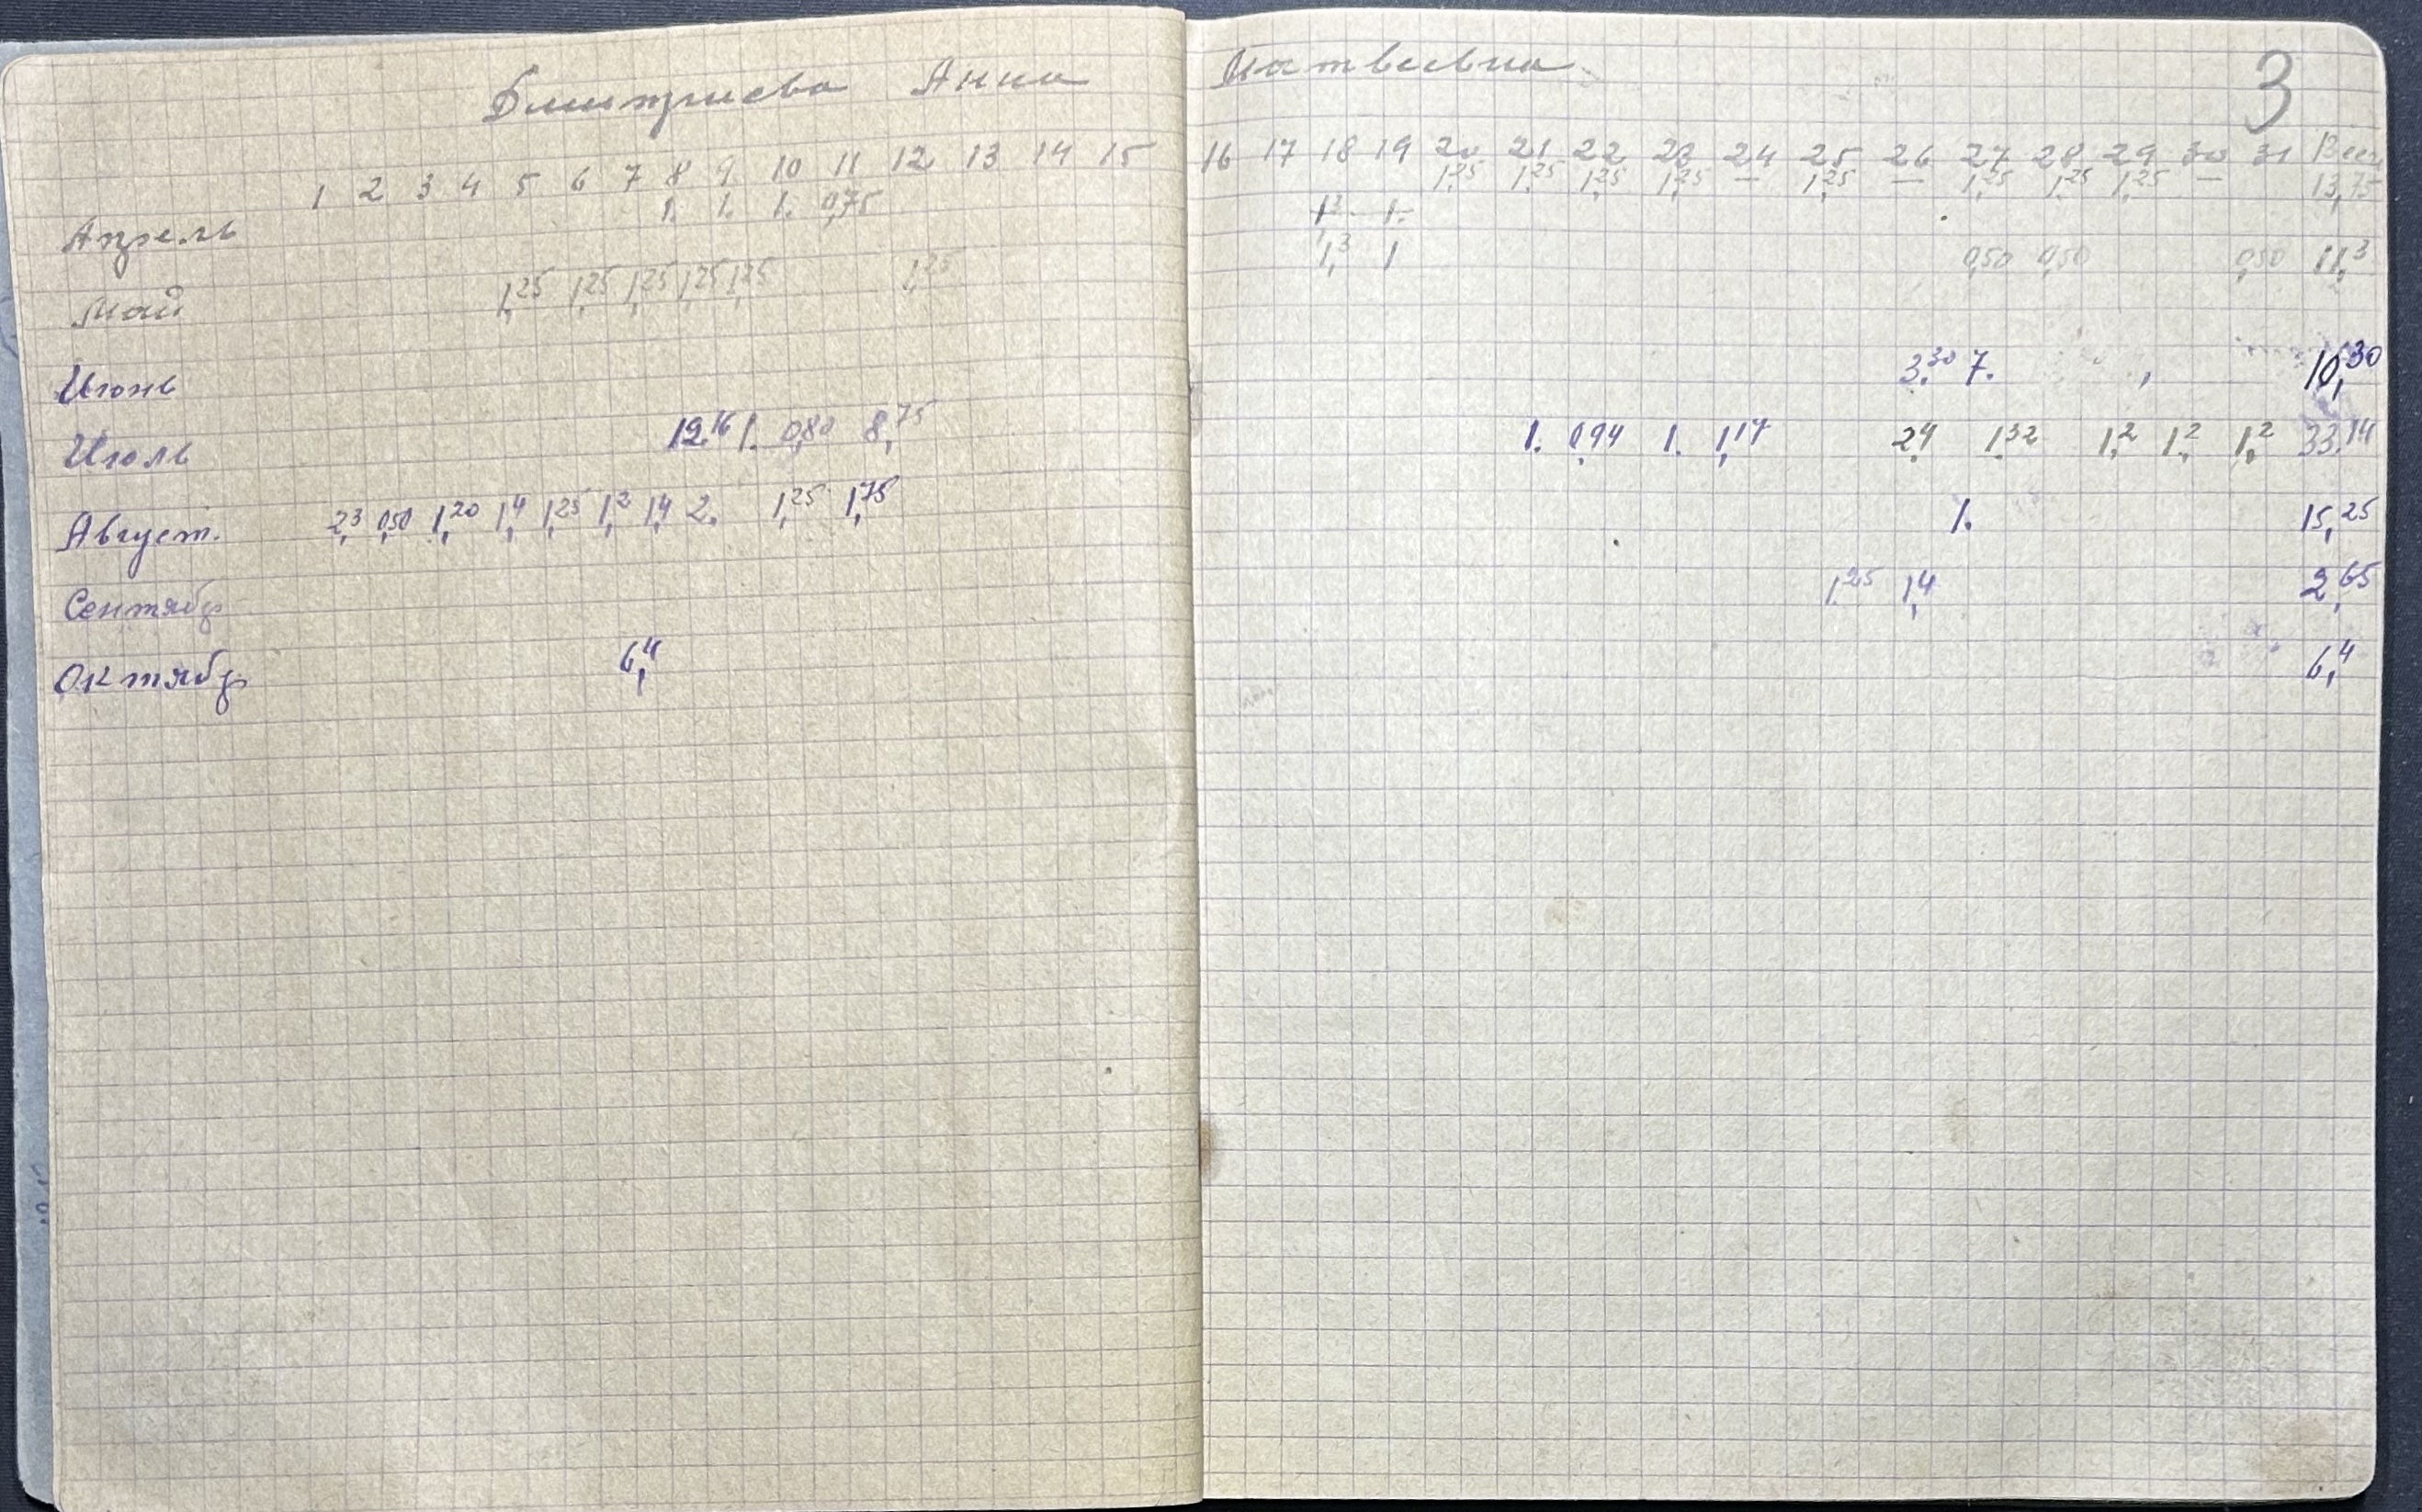 Дмитриева Анна Матвеевна
3
1 2 3 4 5 6 7 8 9 10 11 12 13 14 15 16 17 18 19 20 21 22 23 24 25 26 27 28 29 30 31 Всег
Апрель 1. 1. 1. 0,75 1,25 1,25 1,25 1,25 — 1,25 — 1,25 1,25 1,25 — 13,75
1,3 1.
Май 1,25 1,25 1,25 1,25 1,25 1,25 1,3 1 0,50 0,50 0,50 11,3
Июнь 3.30 7. 10,30
Июль 12.16 1. 0,80 8,75 1. 0,94 1. 1,17 2,4 1.32 1,2 1,2 1,2 33.14
Август. 2,3 0,50 1,20 1,4 1,25 1,2 1,4 2. 1,25 1,75 1. 15,25
Сентябр 1.25 1,4 2,65
Октябр 6,4 6,4